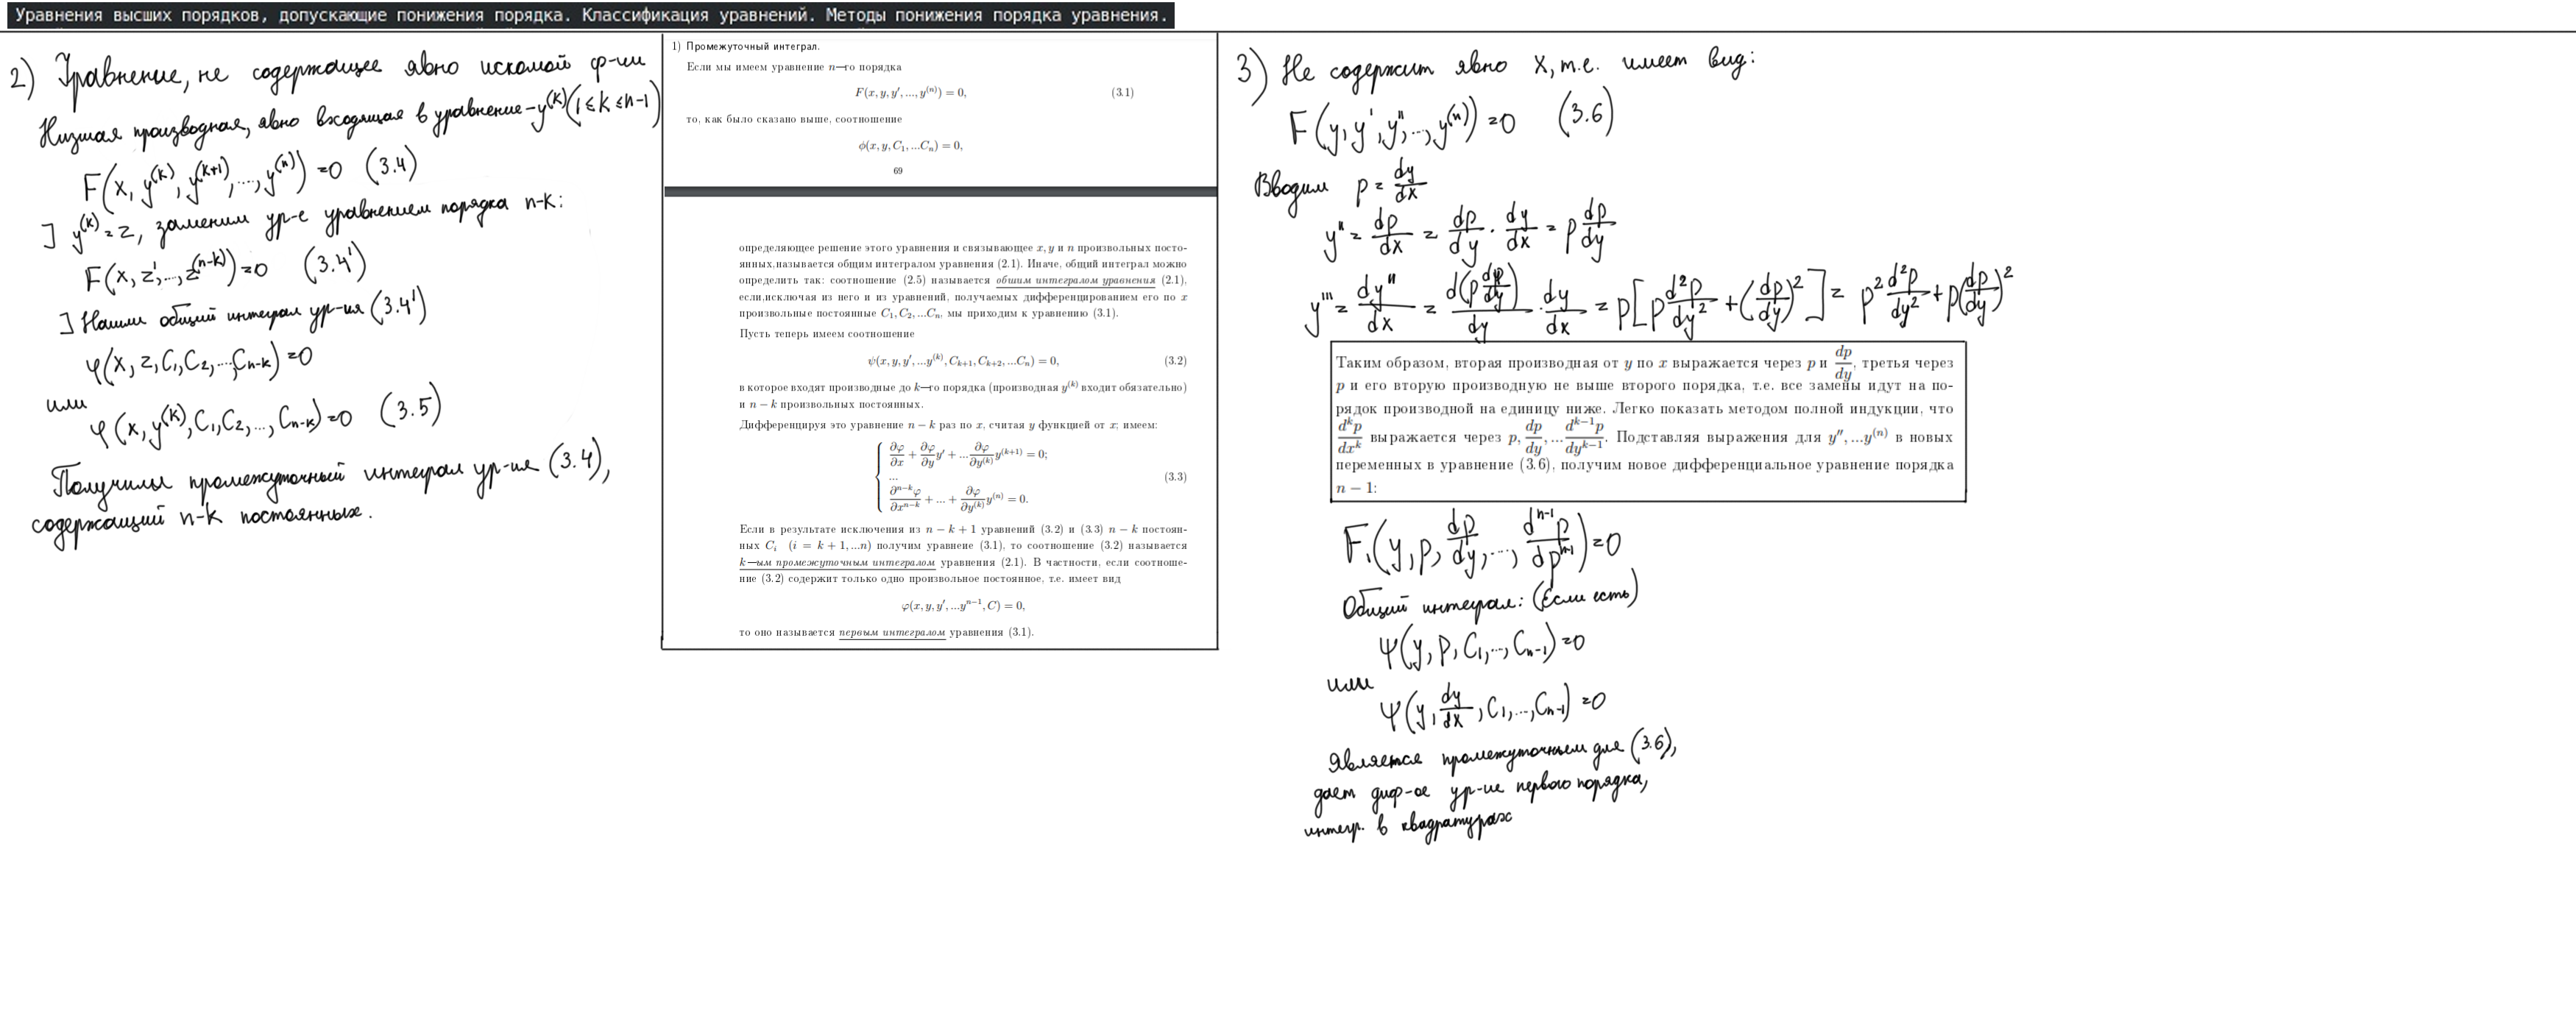 Уравнения высших порядков, допускающие понижения порядка. Классификация уравнений. Методы понижения порядка уравнения.
2) Уравнение, не содержащее явно искомой ф-ии
Низшая производная, явно входящая в уравнение - y^(k) (1 ≤ k ≤ n-1)
F(x, y^(k), y^(k+1), ..., y^(n)) = 0 (3.4)
] y^(k) = z, заменим ур-е уравнением порядка n-k:
F(x, z', ..., z^(n-k)) = 0 (3.4')
] Нашли общий интеграл ур-ия (3.4')
φ(x, z, C₁, C₂, ..., Cₙ₋ₖ) = 0
или
φ(x, y^(k), C₁, C₂, ..., Cₙ₋ₖ) = 0 (3.5)
Получили промежуточный интеграл ур-ия (3.4),
содержащий n-k постоянных.
1) Промежуточный интеграл.
Если мы имеем уравнение n—го порядка
F(x, y, y', ..., y^(n)) = 0, (3.1)
то, как было сказано выше, соотношение
ϕ(x, y, C₁, ...Cₙ) = 0,
69
определяющее решение этого уравнения и связывающее x, y и n произвольных посто-
янных,называется общим интегралом уравнения (2.1). Иначе, общий интеграл можно
определить так: соотношение (2.5) называется общим интегралом уравнения (2.1),
если,исключая из него и из уравнений, получаемых дифференцированием его по x
произвольные постоянные C₁, C₂, ...Cₙ, мы приходим к уравнению (3.1).
Пусть теперь имеем соотношение
ψ(x, y, y', ...y^(k), Cₖ₊₁, Cₖ₊₂, ...Cₙ) = 0, (3.2)
в которое входят производные до k—го порядка (производная y^(k) входит обязательно)
и n − k произвольных постоянных.
Дифференцируя это уравнение n − k раз по x, считая y функцией от x, имеем:
∂φ/∂x + ∂φ/∂y y' + ... ∂φ/∂y^(k) y^(k+1) = 0;
...
∂^(n−k)φ/∂x^(n−k) + ... + ∂φ/∂y^(k) y^(n) = 0. (3.3)
Если в результате исключения из n − k + 1 уравнений (3.2) и (3.3) n − k постоян-
ных Cᵢ (i = k + 1, ...n) получим уравнеие (3.1), то соотношение (3.2) называется
k—ым промежуточным интегралом уравнения (2.1). В частности, если соотноше-
ние (3.2) содержит только одно произвольное постоянное, т.е. имеет вид
φ(x, y, y', ...y^(n−1), C) = 0,
то оно называется первым интегралом уравнения (3.1).
3) Не содержит явно x, т.е. имеет вид:
F(y, y', y'', ..., y^(n)) = 0 (3.6)
Вводим p = dy/dx
y'' = dp/dx = dp/dy · dy/dx = p dp/dy
y''' = dy''/dx = d(p dp/dy)/dy · dy/dx = p[p d²p/dy² + (dp/dy)²] = p² d²p/dy² + p(dp/dy)²
Таким образом, вторая производная от y по x выражается через p и dp/dy, третья через
p и его вторую производную не выше второго порядка, т.е. все замены идут на по-
рядок производной на единицу ниже. Легко показать методом полной индукции, что
d^k p/dx^k выражается через p, dp/dy, ... d^(k−1)p/dy^(k−1). Подставляя выражения для y'', ...y^(n) в новых
переменных в уравнение (3.6), получим новое дифференциальное уравнение порядка
n − 1:
F₁(y, p, dp/dy, ..., d^(n-1)p/dp^(n-1)) = 0
Общий интеграл: (Если есть)
ψ(y, p, C₁, ..., Cₙ₋₁) = 0
или
ψ(y, dy/dx, C₁, ..., Cₙ₋₁) = 0
Является промежуточным для (3.6),
дает диф-ое ур-ие первого порядка,
интегр. в квадратурах